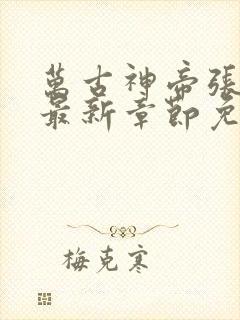 萬古神帝張
最新章節免
梅克寒